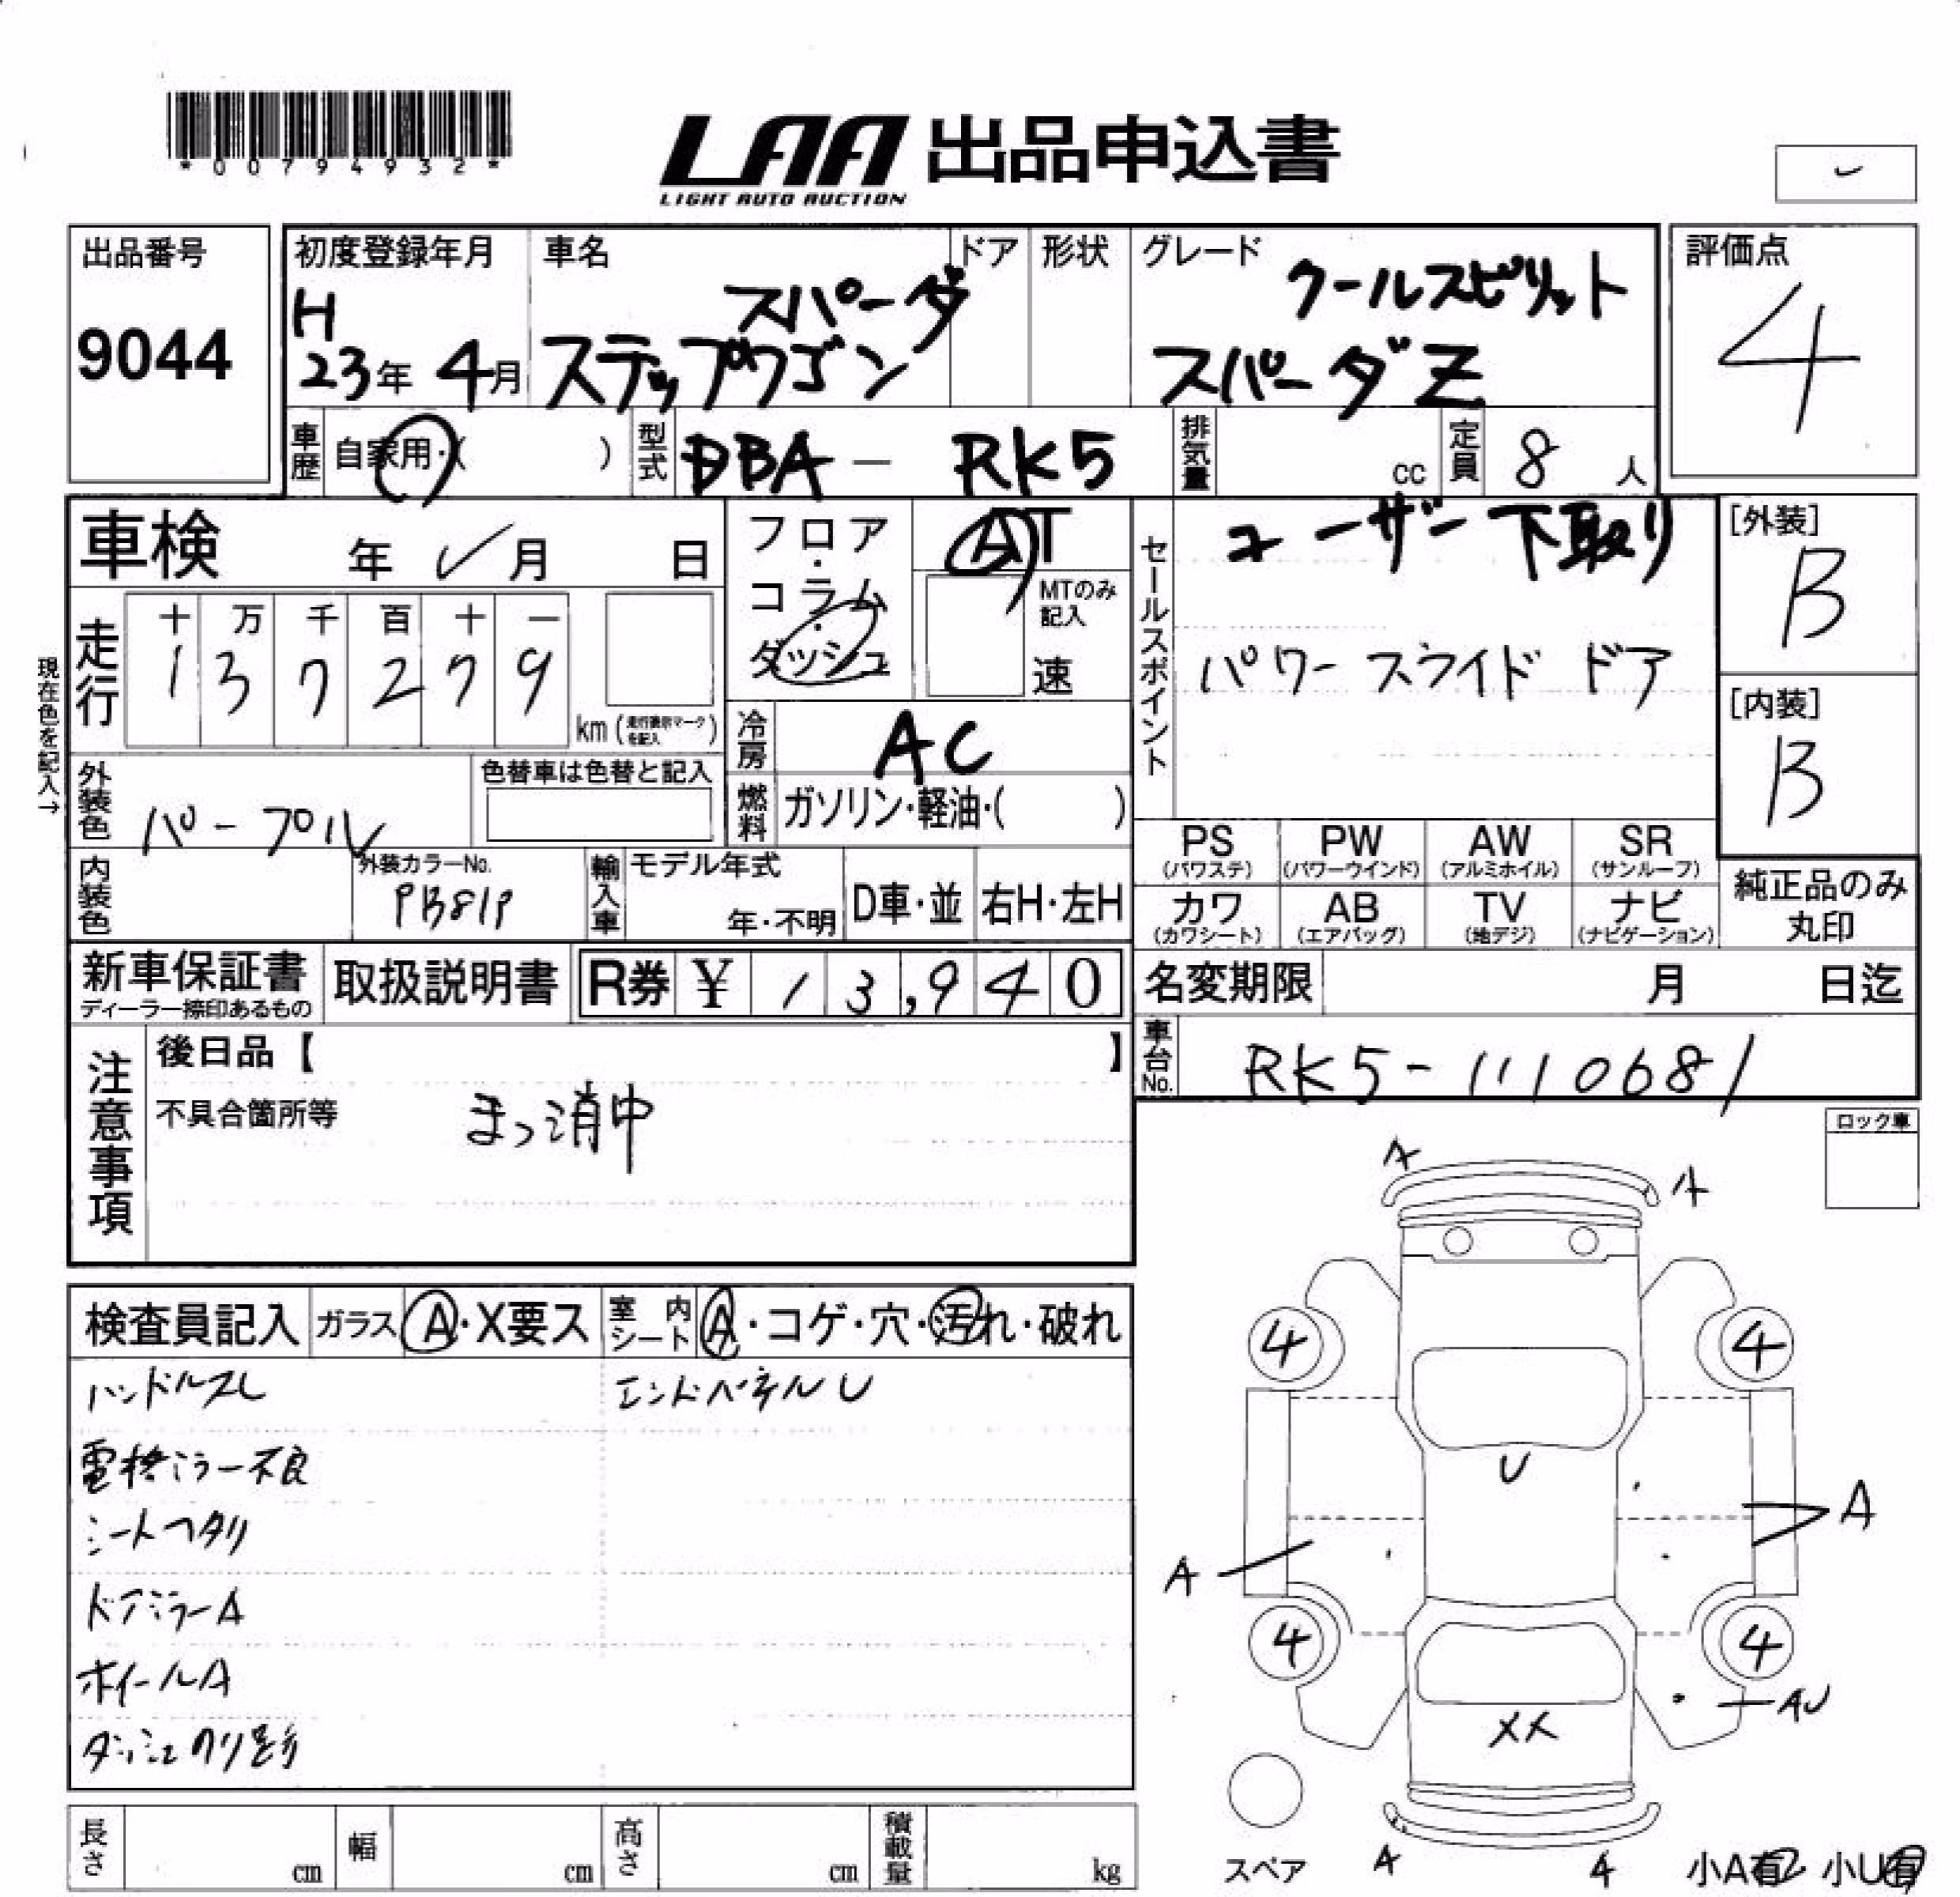 *00794932*
LAA 出品申込書
LIGHT AUTO AUCTION
出品番号
9044
初度登録年月
H
23年 4月
車名
スパーダ
ステップワゴン
ドア
形状
グレード
クールスピリット
スパーダZ
評価点
4
車歴
自家用・( )
型式
DBA - RK5
排気量
cc
定員
8人
車検 年 月 日
フロア・コラム・ダッシュ
AT
MTのみ記入
速
セールスポイント
ユーザー下取り
パワースライドドア
[外装]
B
[内装]
B
現在色を記入→
走行
十 万 千 百 十 一
1 3 7 2 7 9
km (走行表示マークを記入)
冷房
AC
燃料
ガソリン・軽油・( )
外装色
パープル
色替車は色替と記入
内装色
外装カラーNo.
PB81P
輸入車
モデル年式
年・不明
D車・並
右H・左H
PS (パワステ)
PW (パワーウインド)
AW (アルミホイル)
SR (サンルーフ)
カワ (カワシート)
AB (エアバッグ)
TV (地デジ)
ナビ (ナビゲーション)
純正品のみ
丸印
新車保証書
ディーラー捺印あるもの
取扱説明書
R券 ¥ 13,940
名変期限 月 日迄
車台No.
RK5-1110681
注意事項
後日品【 】
不具合箇所等
まっ消中
ロック車
検査員記入
ガラス A・X要ス
室内シート A・コゲ・穴・汚れ・破れ
ハンドルスレ
エンドパネルU
電格ミラー不良
シートヘタリ
ドアミラーA
ホイールA
ダッシュノリ跡
A
A
4
4
U
A
A
4
4
AU
XX
スペア
A
4
小A有 小U有
長さ cm
幅 cm
高さ cm
積載量 kg